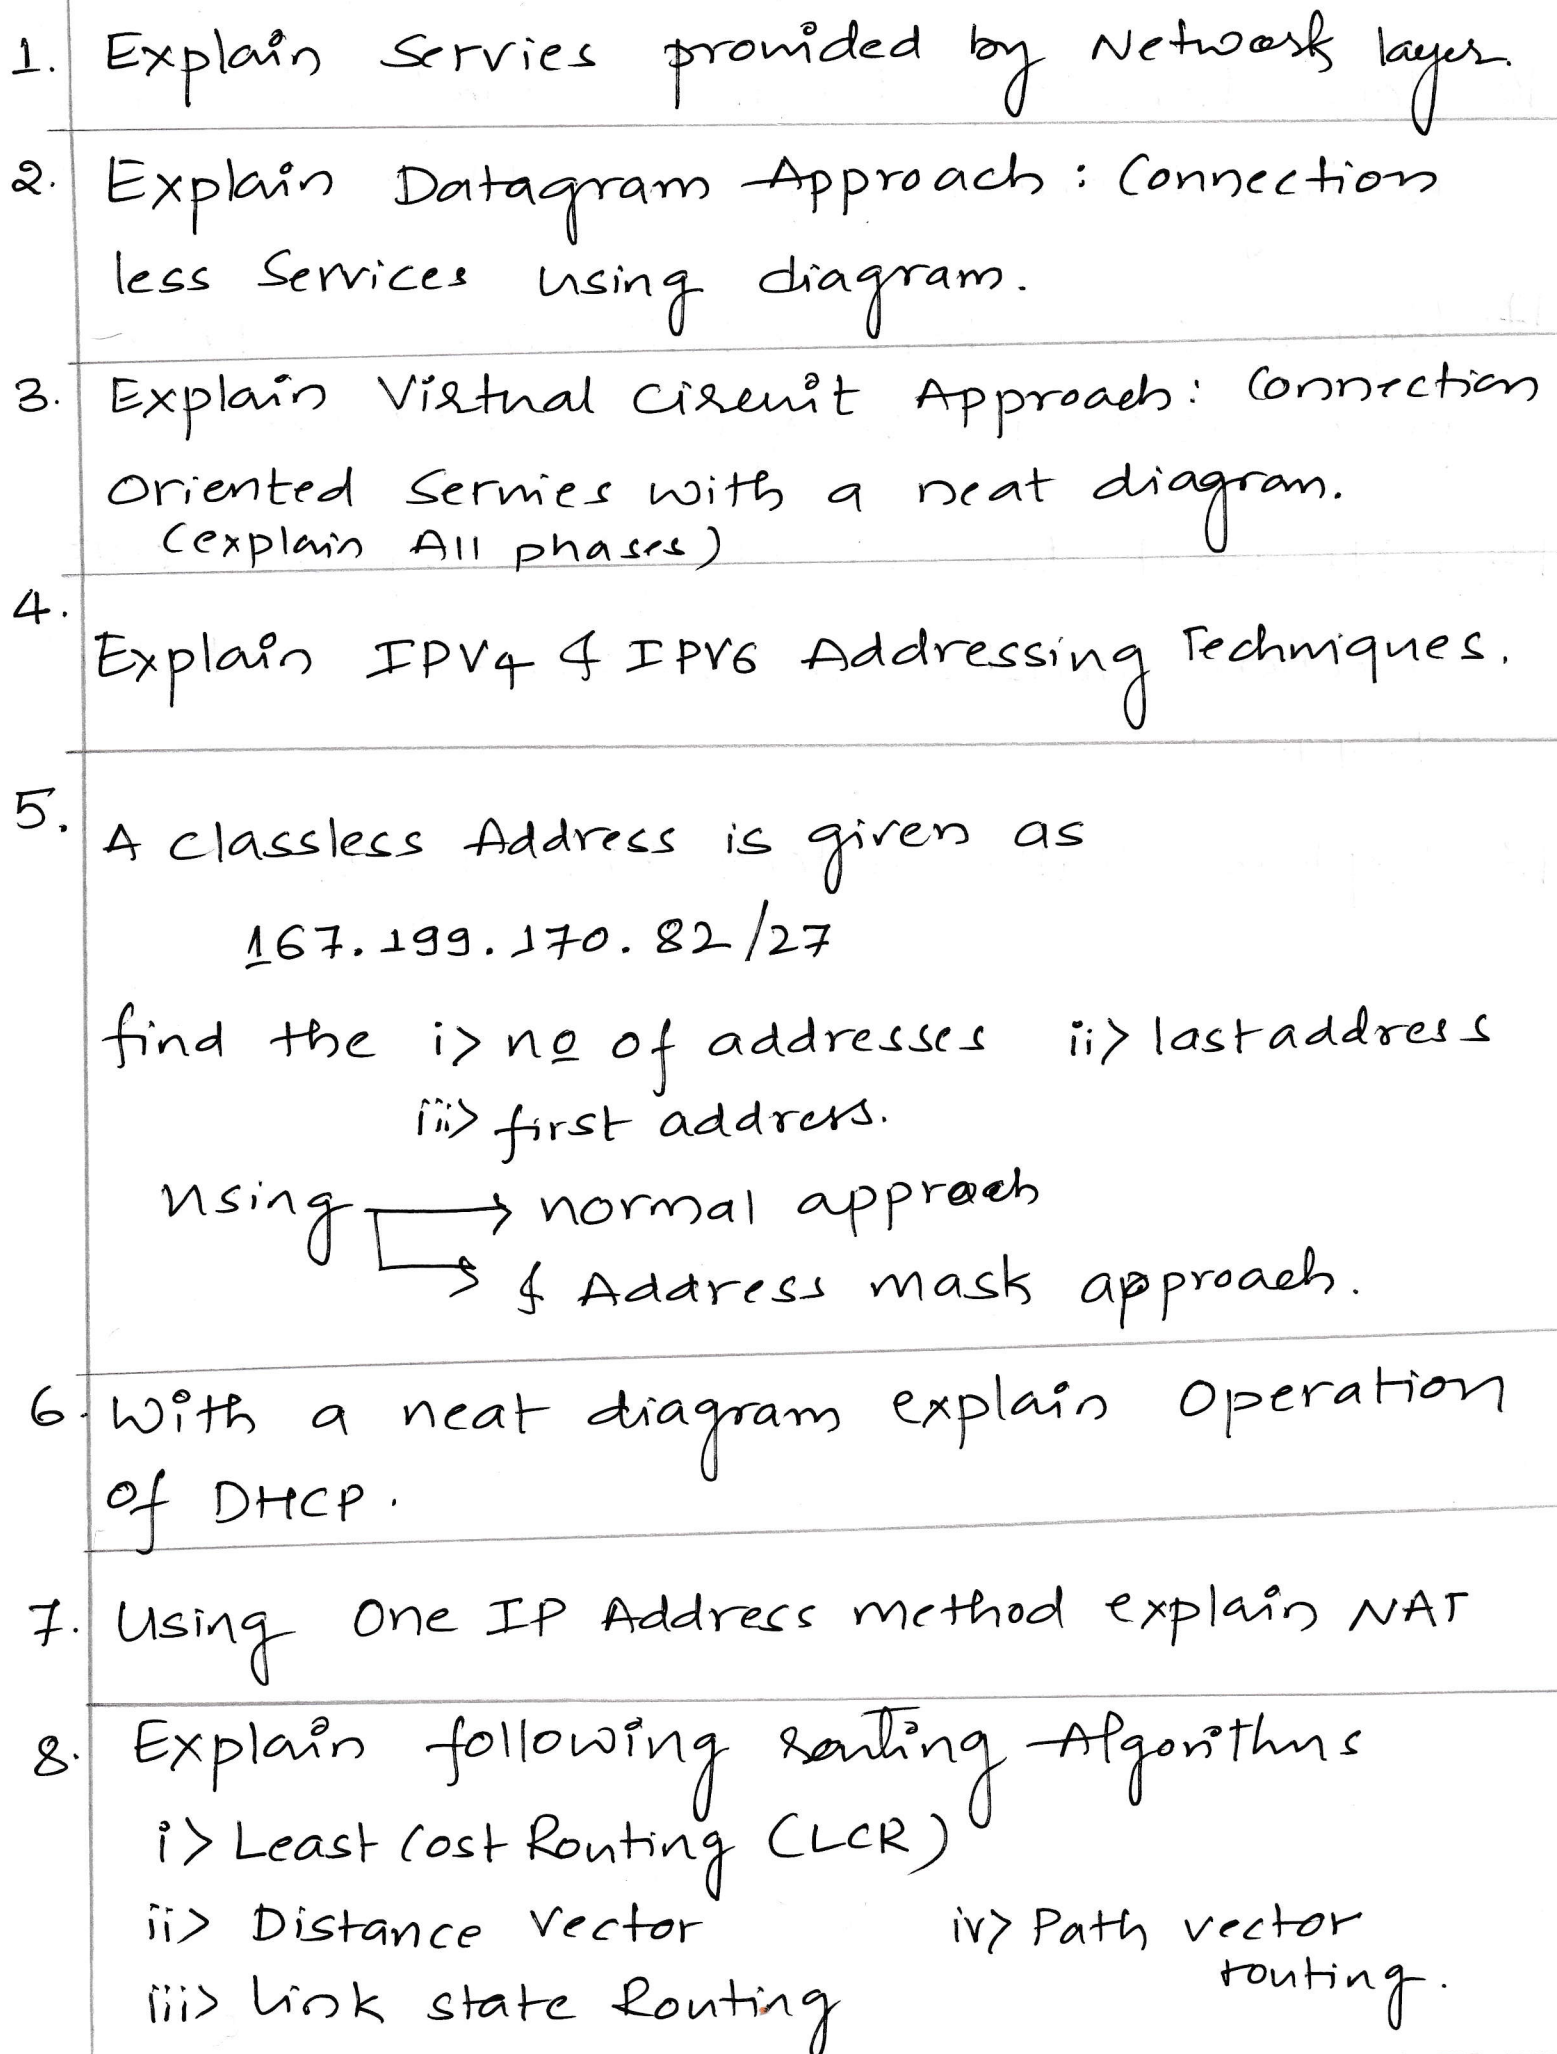 1. Explain Servies provided by Network layer.
2. Explain Datagram Approach : Connection
less Services using diagram.
3. Explain Virtual circuit Approach : Connection
Oriented Servies with a neat diagram.
(explain All phases)
4.
Explain IPV4 & IPV6 Addressing Techniques.
5.
A classless Address is given as
167.199.170.82/27
find the i> no of addresses ii> last address
iii> first address.
using → normal approach
→ & Address mask approach.
6. With a neat diagram explain Operation
of DHCP.
7. Using One IP Address method explain NAT
8. Explain following routing Algorithms
i> Least Cost Routing (LCR)
ii> Distance Vector iv> Path vector
routing.
iii> Link state Routing